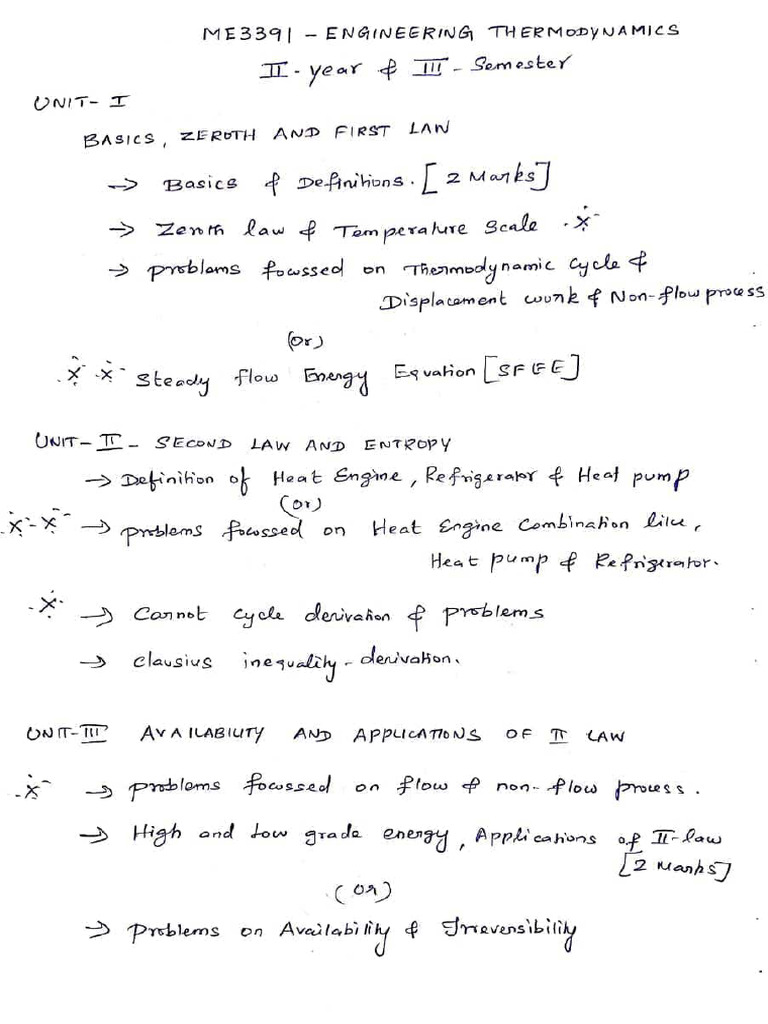 ME3391 - ENGINEERING THERMODYNAMICS
II - year & III - Semester
UNIT - I
BASICS, ZEROTH AND FIRST LAW
→ Basics & Definitions. [2 Marks]
→ Zeroth law & Temperature Scale
→ problems focussed on Thermodynamic cycle &
Displacement work & Non-flow process
(or)
Steady flow Energy Equation [SFEE]
UNIT - II - SECOND LAW AND ENTROPY
→ Definition of Heat Engine, Refrigerator & Heat pump
(or)
→ problems focussed on Heat Engine Combination like,
Heat pump & Refrigerator.
→ Carnot cycle derivation & problems
→ clausius inequality - derivation.
UNIT-III AVAILABILITY AND APPLICATIONS OF II LAW
→ problems focussed on flow & non-flow process.
→ High and Low grade energy, Applications of II-law
[2 Marks]
(or)
→ Problems on Availability & Irreversibility